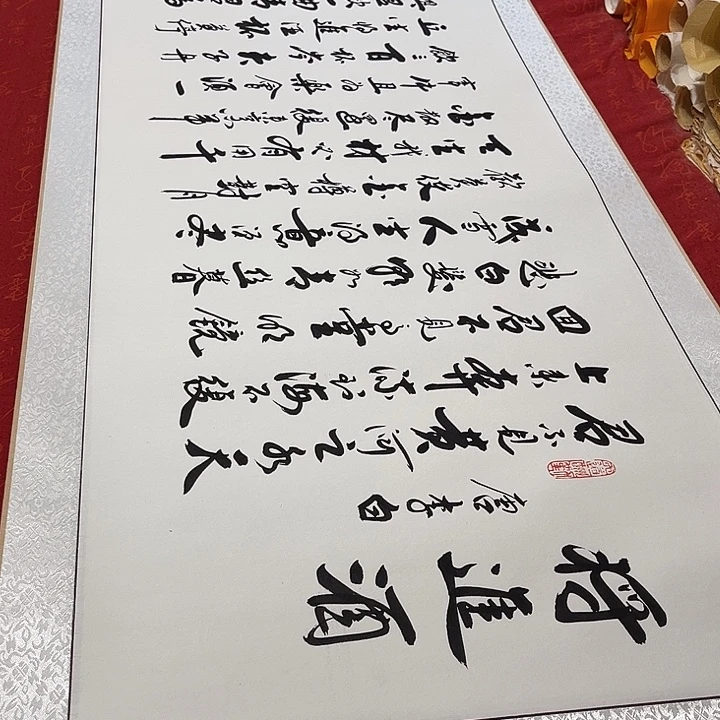 將進酒
唐李白
君不見黃河之水天
上來奔流到海不復
回君不見高堂明鏡
悲白髮朝如青絲暮
成雪人生得意須盡
歡莫使金樽空對月
天生我材必有用千
金散盡還復來烹羊
宰牛且為樂會須一
飲三百杯岑夫子丹
丘生將進酒杯莫停